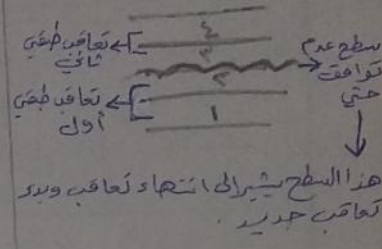 ٤
تعاقب طبقي
ثاني
٣
سطح عدم
توافق
حتي
٢
تعاقب طبقي
أول
١
هذا السطح يشير إلى انتهاء تعاقب وبدء
تعاقب جديد .